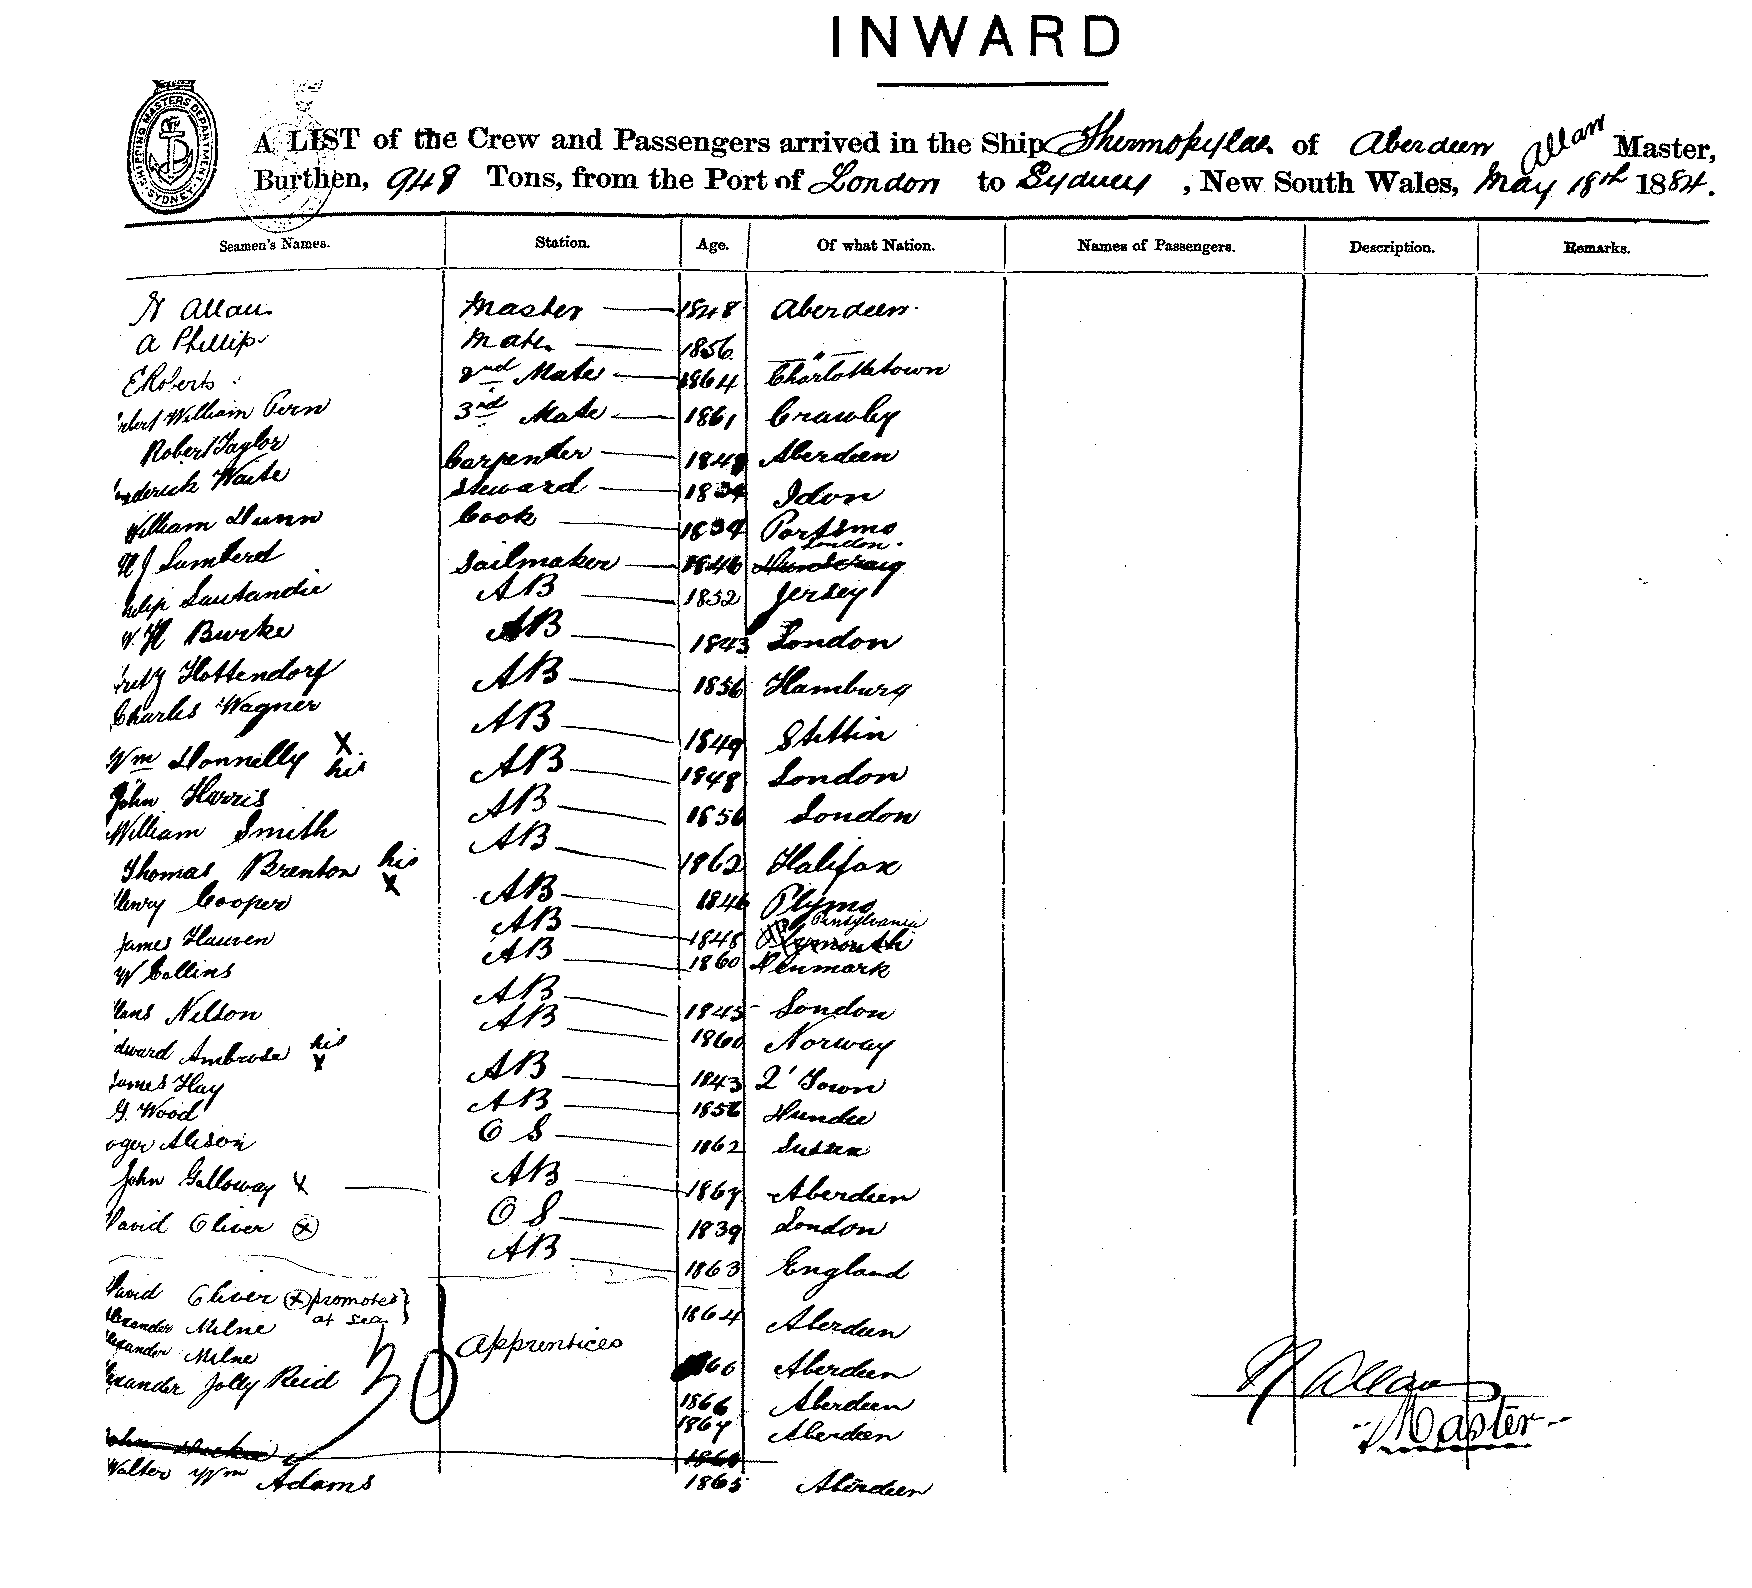 INWARD
SHIPPING MASTERS DEPARTMENT SYDNEY
A LIST of the Crew and Passengers arrived in the Ship Thermopylae of Aberdeen Allan Master,
Burthen, 948 Tons, from the Port of London to Sydney, New South Wales, May 18th 1884.
Seamen's Names. Station. Age. Of what Nation. Names of Passengers. Description. Remarks.
H Allan Master 1848 Aberdeen
A Phillip Mate 1856 "
E Roberts 2nd Mate 1864 Charlottetown
William 3rd Mate 1861 Crawley
Robert Taylor Carpenter 1848 Aberdeen
ederick Waite Steward 1834 Idon
William Dunn Cook 1834 Portsmo
London
H J Lumberd Sailmaker 1846
hilip Lautandie AB 1852 Jersey
W. H Burke AB 1843 London
Fritz Hottendorf AB 1856 Hamburg
Charles Wagner AB 1849 Stettin
Wm Donnelly X his AB 1848 London
John Harris AB 1856 London
William Smith AB 1862 Halifax
Thomas Brenton his X AB 1846 Plymo
Henry Cooper AB 1848 Plymouth Pensylvania
James Hauven AB 1860 Denmark
W Collins AB 1845 London
Hans Nelson AB 1860 Norway
dward Ambrose his X AB 1843 2' Town
James Hay AB 1856 Dundee
G. Wood O S 1862 Sussex
oger Alison AB 1867 Aberdeen
John Galloway X O S 1839 London
David Oliver X AB 1863 England
David Oliver X promoted at sea 1864 Aberdeen
lexander Milne Apprentices 66 Aberdeen
lexander Milne 1866 Aberdeen
lexander Jolly Reid 1867 Aberdeen
John
Walter Wm Adams 1865 Aberdeen
H Allan
Master